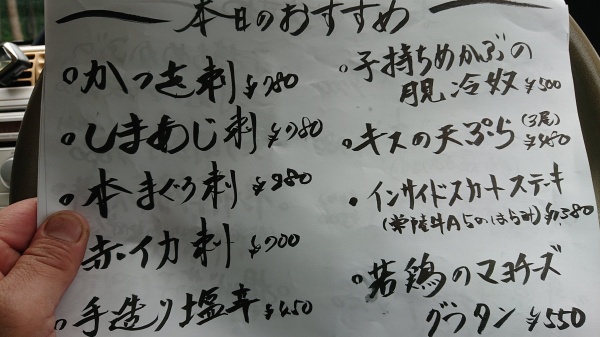 本日のおすすめ
。かつお刺 ¥780
。しまあじ刺 ¥780
。本まぐろ刺 ¥980
。赤イカ刺 ¥700
。手造り塩辛 ¥450
。子持ちめかぶの
月見冷奴 ¥500
。キスの天ぷら (3尾) ¥480
。インサイドスカートステーキ
(常陸牛A5のはらみ) ¥1,380
。若鶏のマヨチーズ
グラタン ¥550